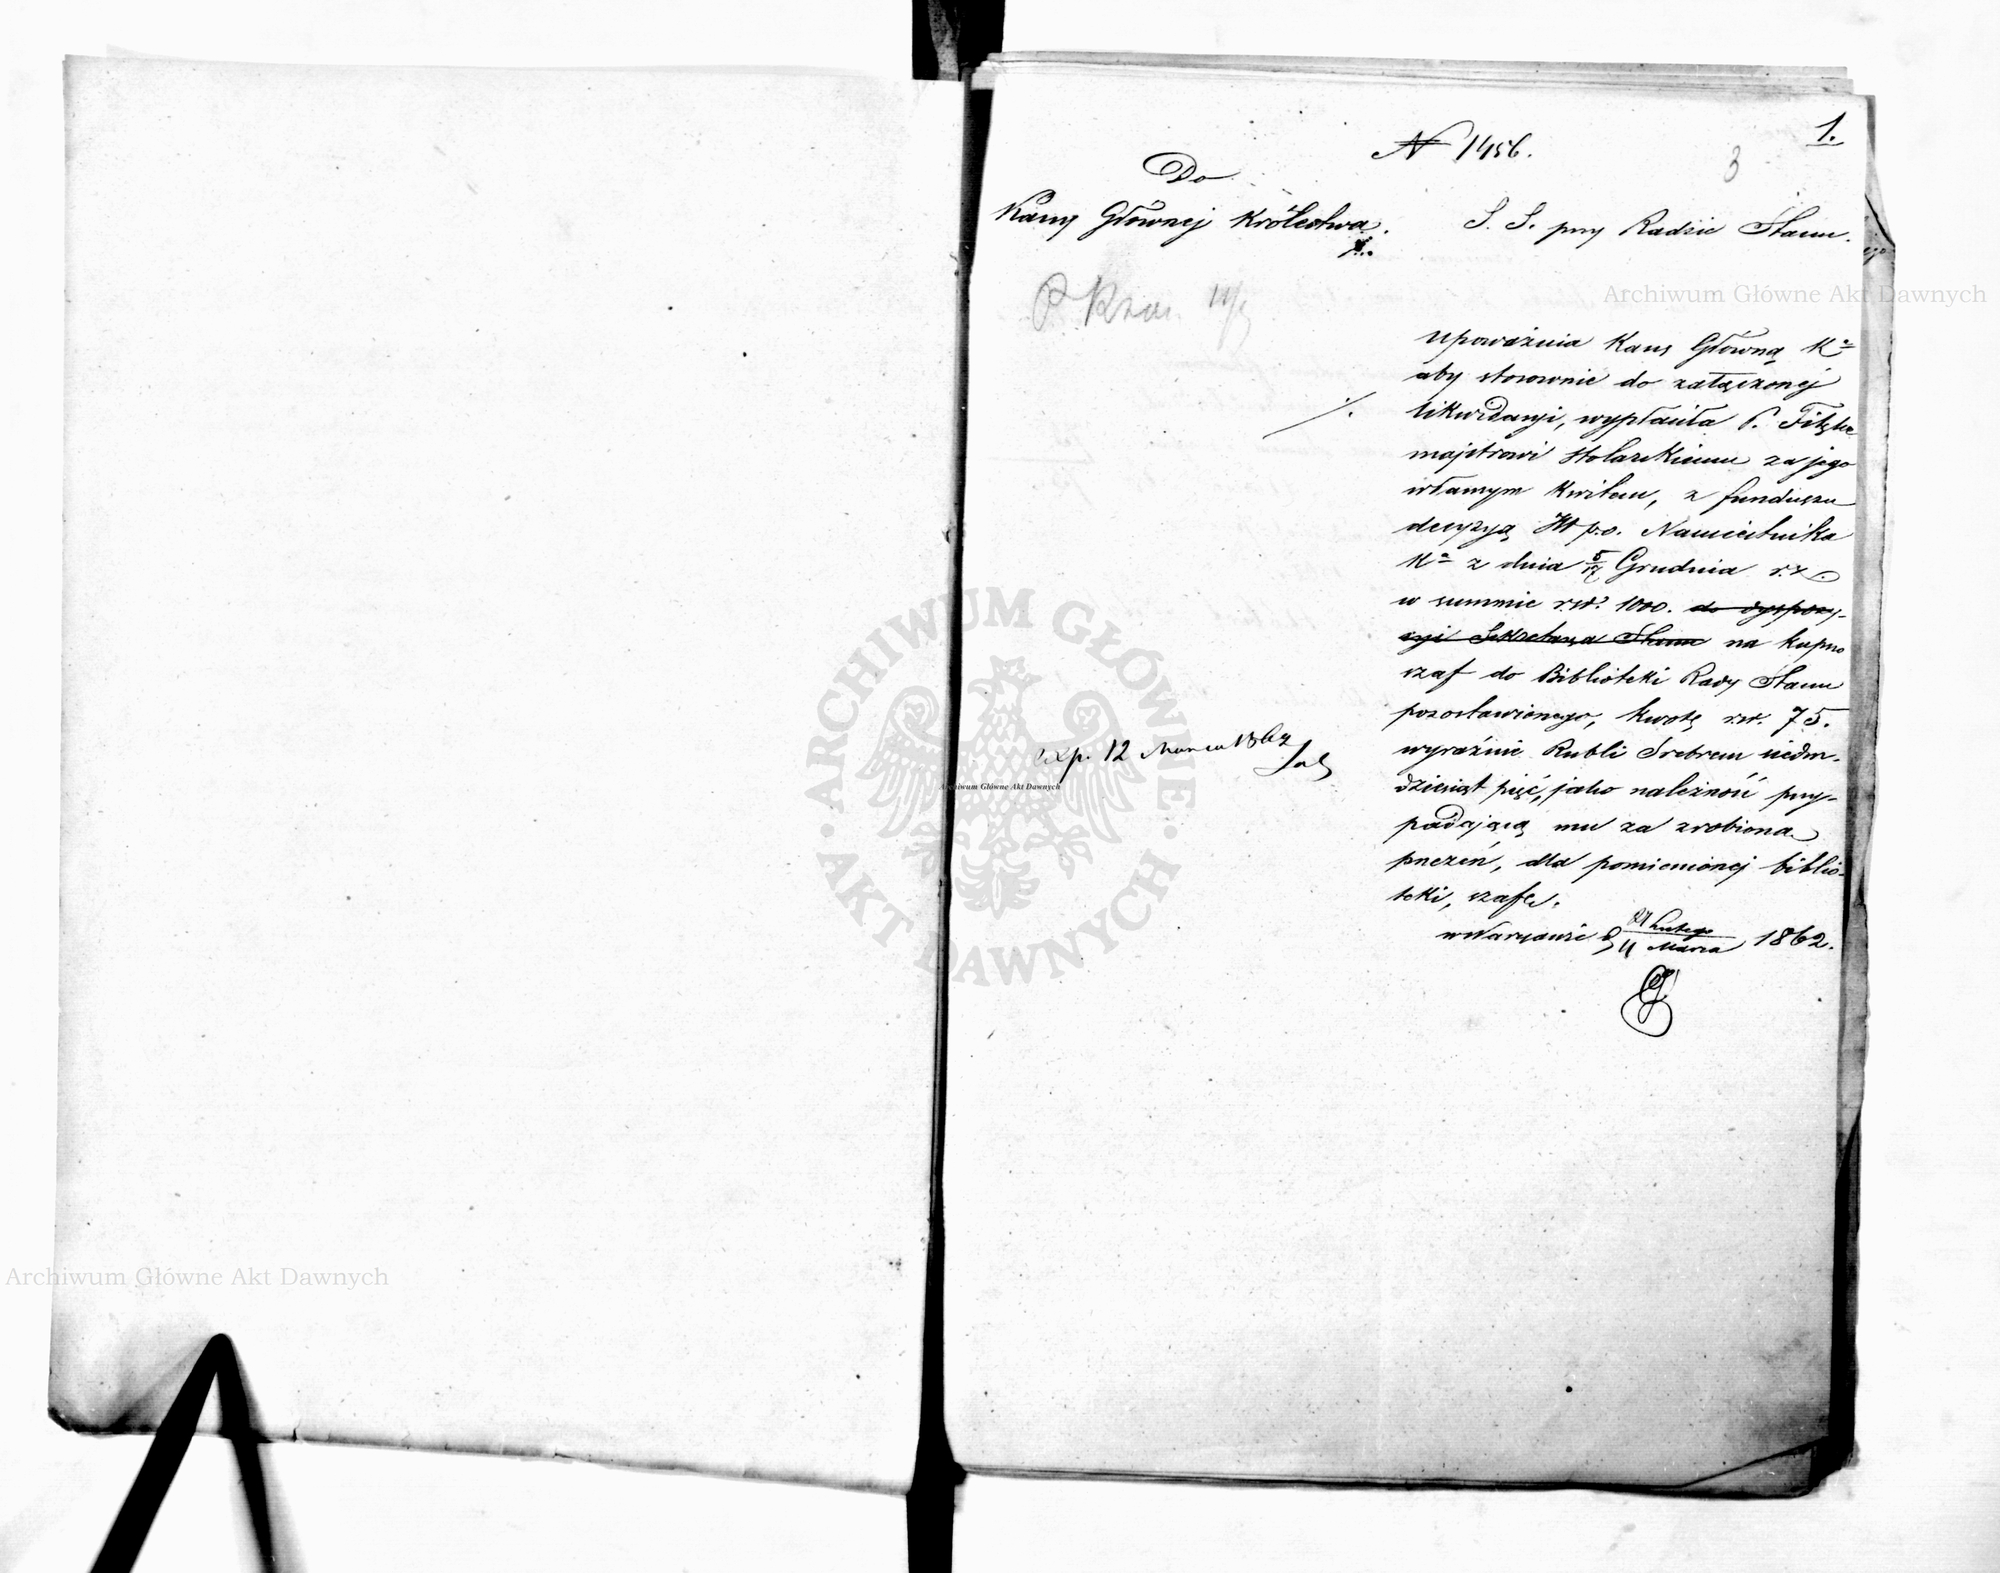 1.
№ 1456.
3
Do
Kassy Głównej Królestwa.
S. S. przy Radzie Stanu.
upoważnia Kassę Główną Kª
aby stosownie do załączonej
likwidacyi, wypłaciła P.
majstrowi stolarskiemu za jego
własnym kwitem, z funduszu
decyzyą JW p.o. Namiestnika
Kª z dnia 5/17 Grudnia r.z.
w summie rsr. 1000. do dyspozy-
cyi Sekretarza Stanu na kupno
szaf do Biblioteki Rady Stanu
pozostawionego, kwotę rsr. 75.
wyraźnie Rubli Srebrem siedm-
dziesiąt pięć, jako należność przy-
padającą mu za zrobioną
przezeń, dla pomienionej biblio-
teki, szafę.
w Warszawie d 27 Lutego / 11 Marca 1862.
exp. 12 Marca 1862
Archiwum Główne Akt Dawnych
Archiwum Główne Akt Dawnych
Archiwum Główne Akt Dawnych
ARCHIWUM GŁÓWNE
AKT DAWNYCH